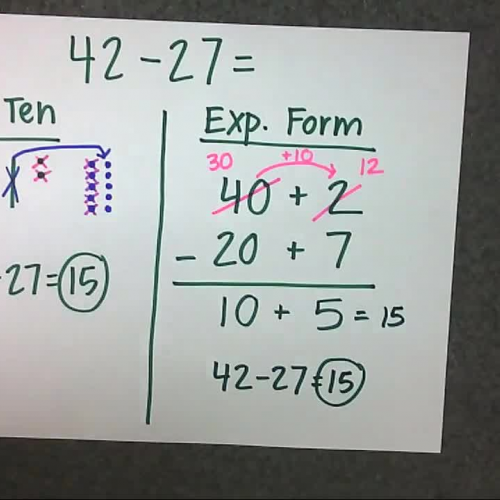 42 - 27 =
Ten
-27 = 15
Exp. Form
30 +10 12
40 + 2
- 20 + 7
10 + 5 = 15
42 - 27 = 15